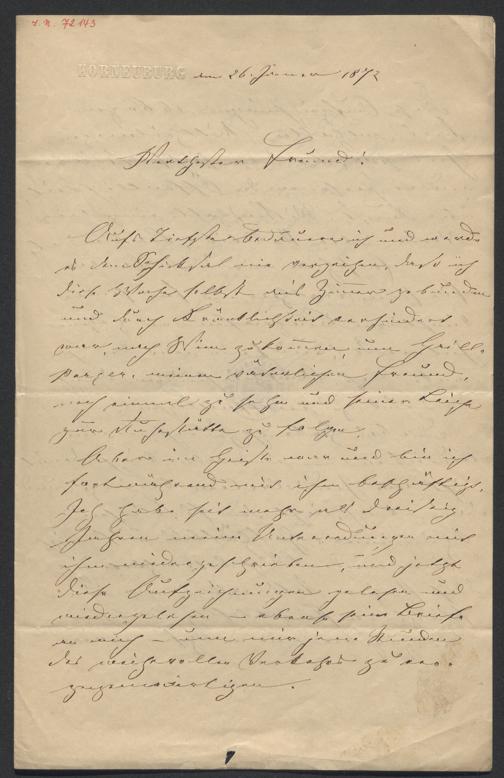 I.N. 72143
KORNEUBURG am 26. Jänner 1872
Werthester Freund!
Aufs Tiefste bedauere ich und werde
es dem Schicksal nie verzeihen, daß ich
diese Woche selbst ans Zimer gebunden
und durch Kränklichkeit verhindert
war, nach Wien zu komen, um Grill-
parzer, meinen väterlichen Freund,
noch einmal zu sehn und seiner Leiche
zur Ruhestätte zu folgen.
Aber im Geiste war und bin ich
fortwährend mit ihm beschäftigt.
Ich habe seit mehr als dreißig
Jahren meine Unterredungen mit
ihm niedergeschrieben, und jetzt
diese Aufzeichnungen gelesen und
wiedergelesen – ebenso seine Briefe
an mich – um mir jene Stunden
des weihevollen Verkehrs zu ver-
gegenwärtigen.